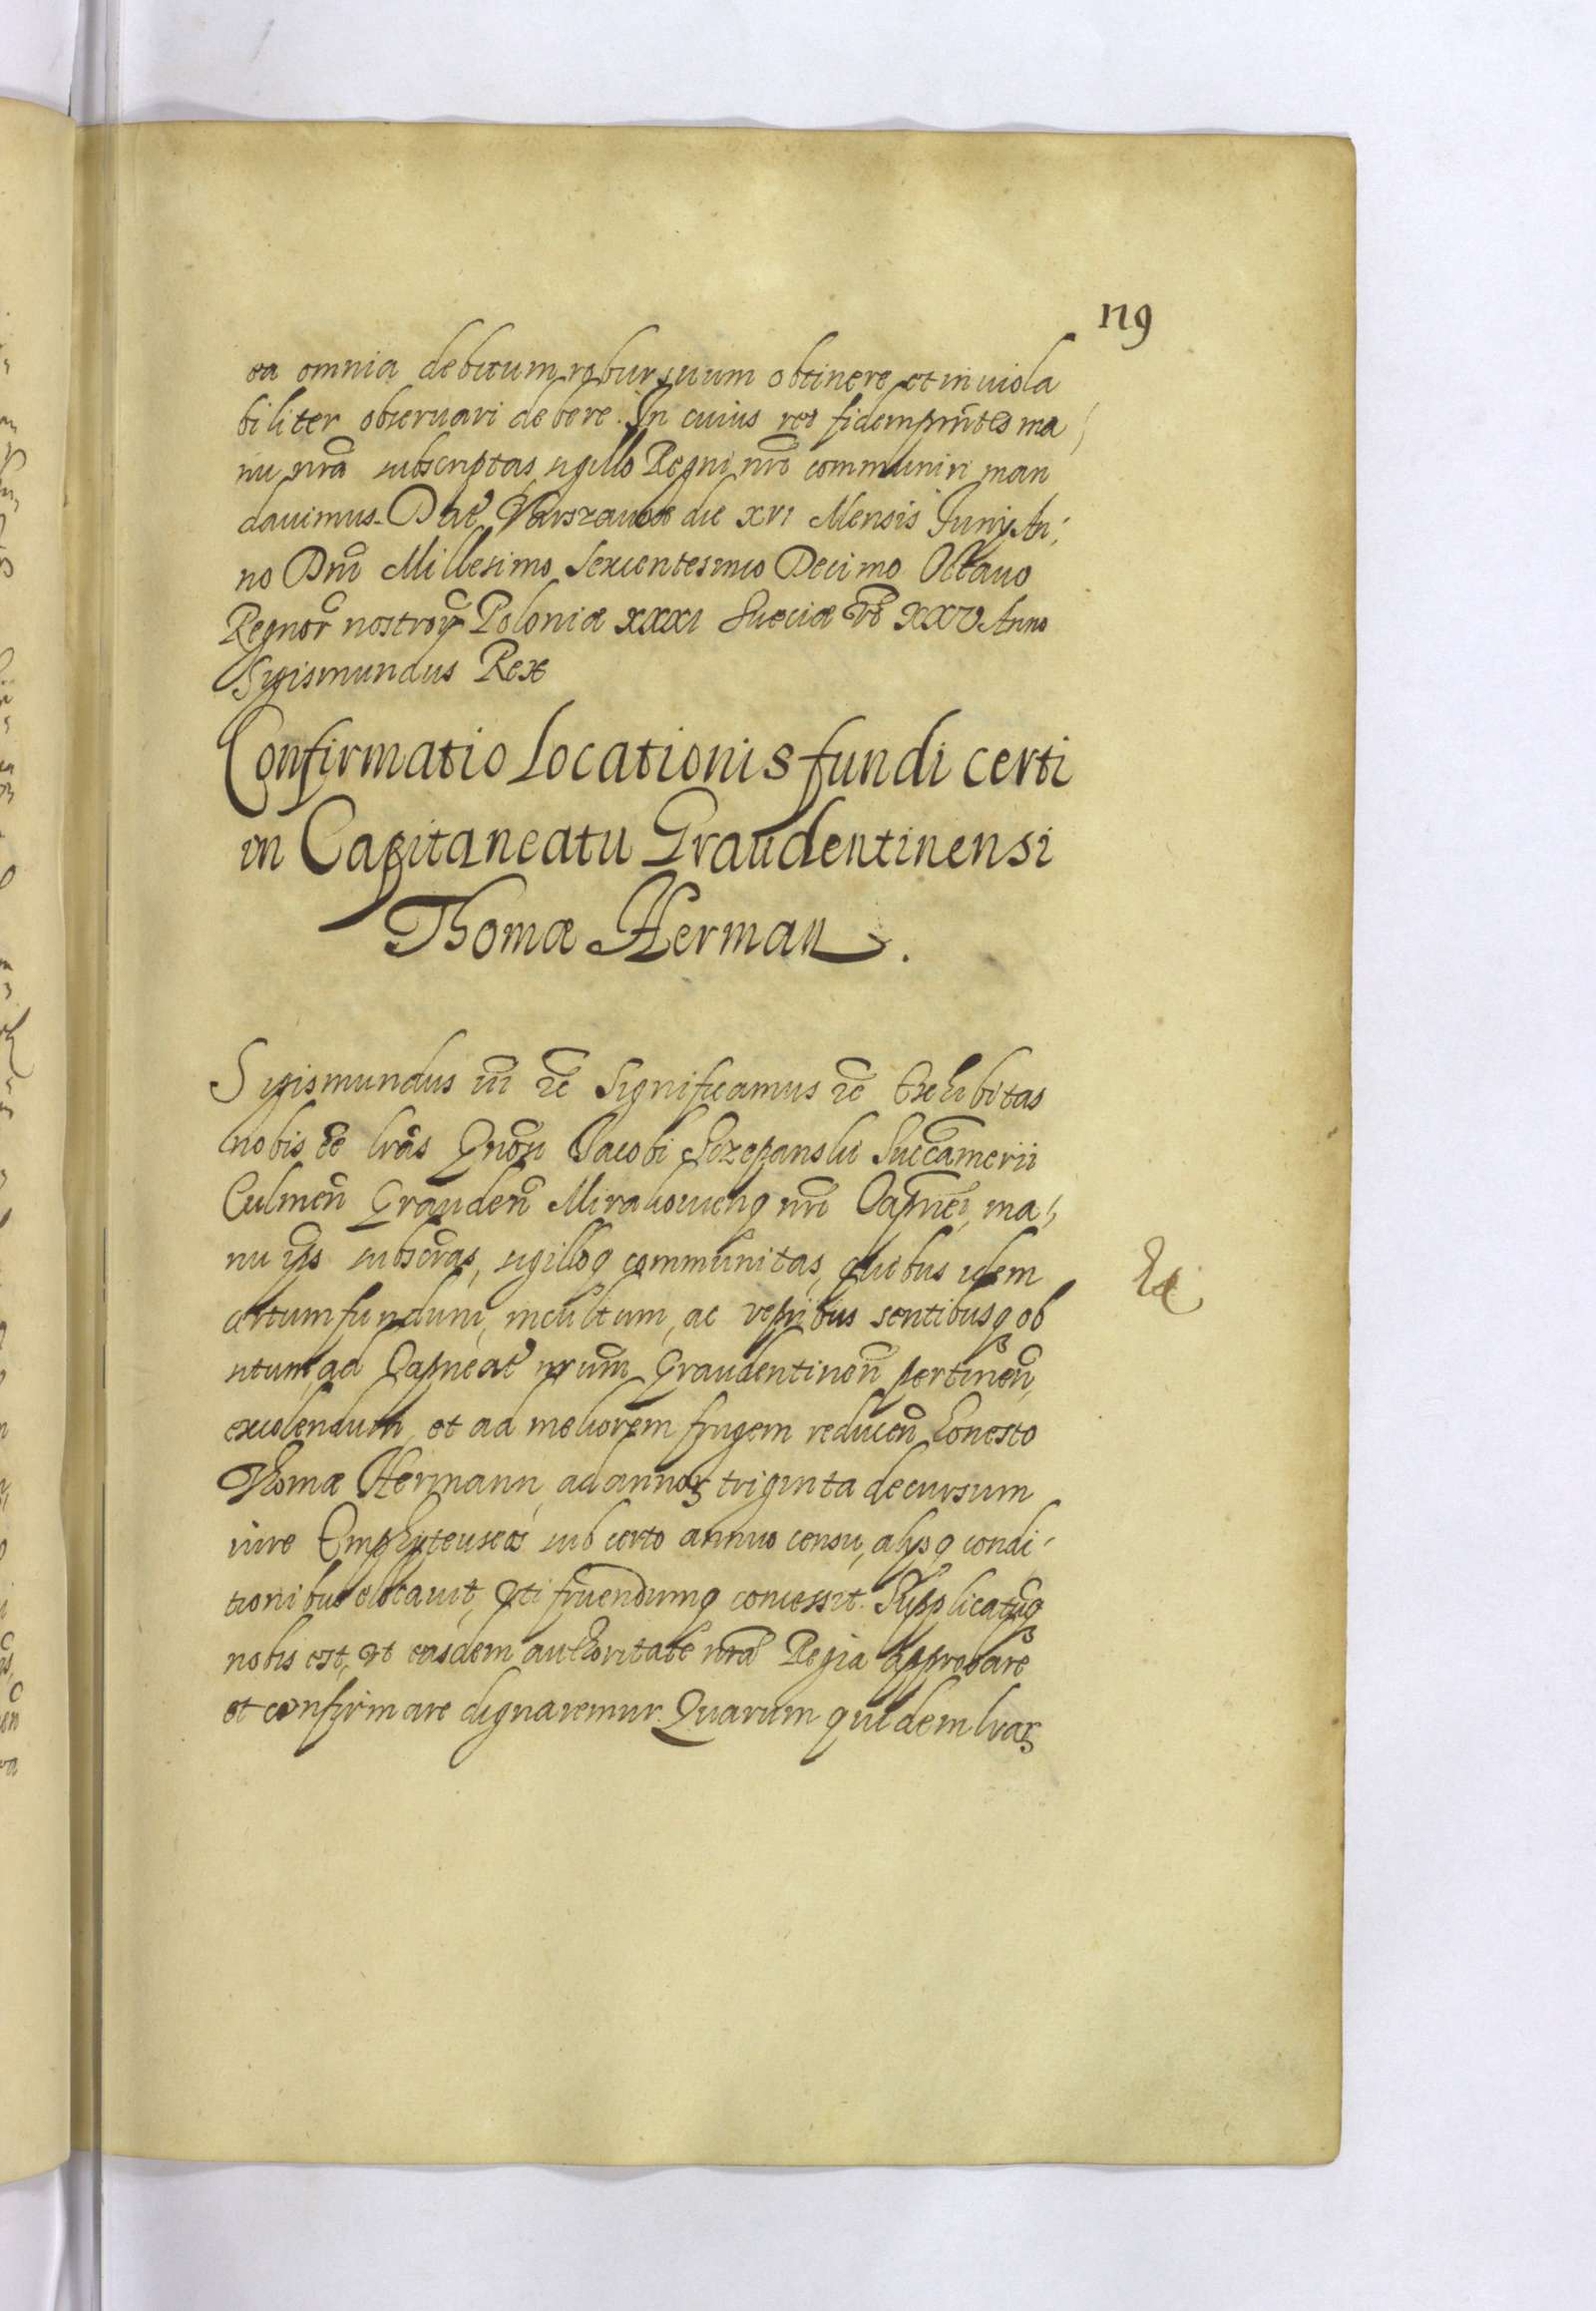 119
ea omnia debitum robur suum obtinere et inviola
biliter observari debere. In cuius rei fidem pnītes ma
nu nrā subscriptas sigillo Regni nrī communiri man
davimus. Dat Varszaviæ die XVI Mensis Junij An:
no Dnī Millesimo Sexcentesimo Decimo Octavo
Regnor nostror Poloniæ XXXI Sueciæ vo XXV Anno
Sigismundus Rex
Confirmatio Locationis fundi certi
in Capitaneatu Graudentinensi
Thomæ Herman.
Sigismundus iii &c Significamus &c Exhibitas
nobis ee lrās Gnosi Jacobi Sczepanski Succamerii
Culmen Grauden Mirachoviensq nrī Capnei, ma
nu ips subscras, sigilloq communitas, quibus idem
certum fundum, incultum, ac vepribus sentibusq ob
situm, ad Capneat nrum Graudentinen pertinen,
excolendum, et ad meliorem frugem reducen honesto
Thomæ Hermann, ad annor triginta decursum
iure Emphyteuseos sub certo annuo censu, alysq condi
tionibus elocavit, uti fruendumq concessit. Supplicatuq
nobis est, ut easdem authoritate nrā Regia approbare
et confirmare dignaremur. Quarum quidem lrar